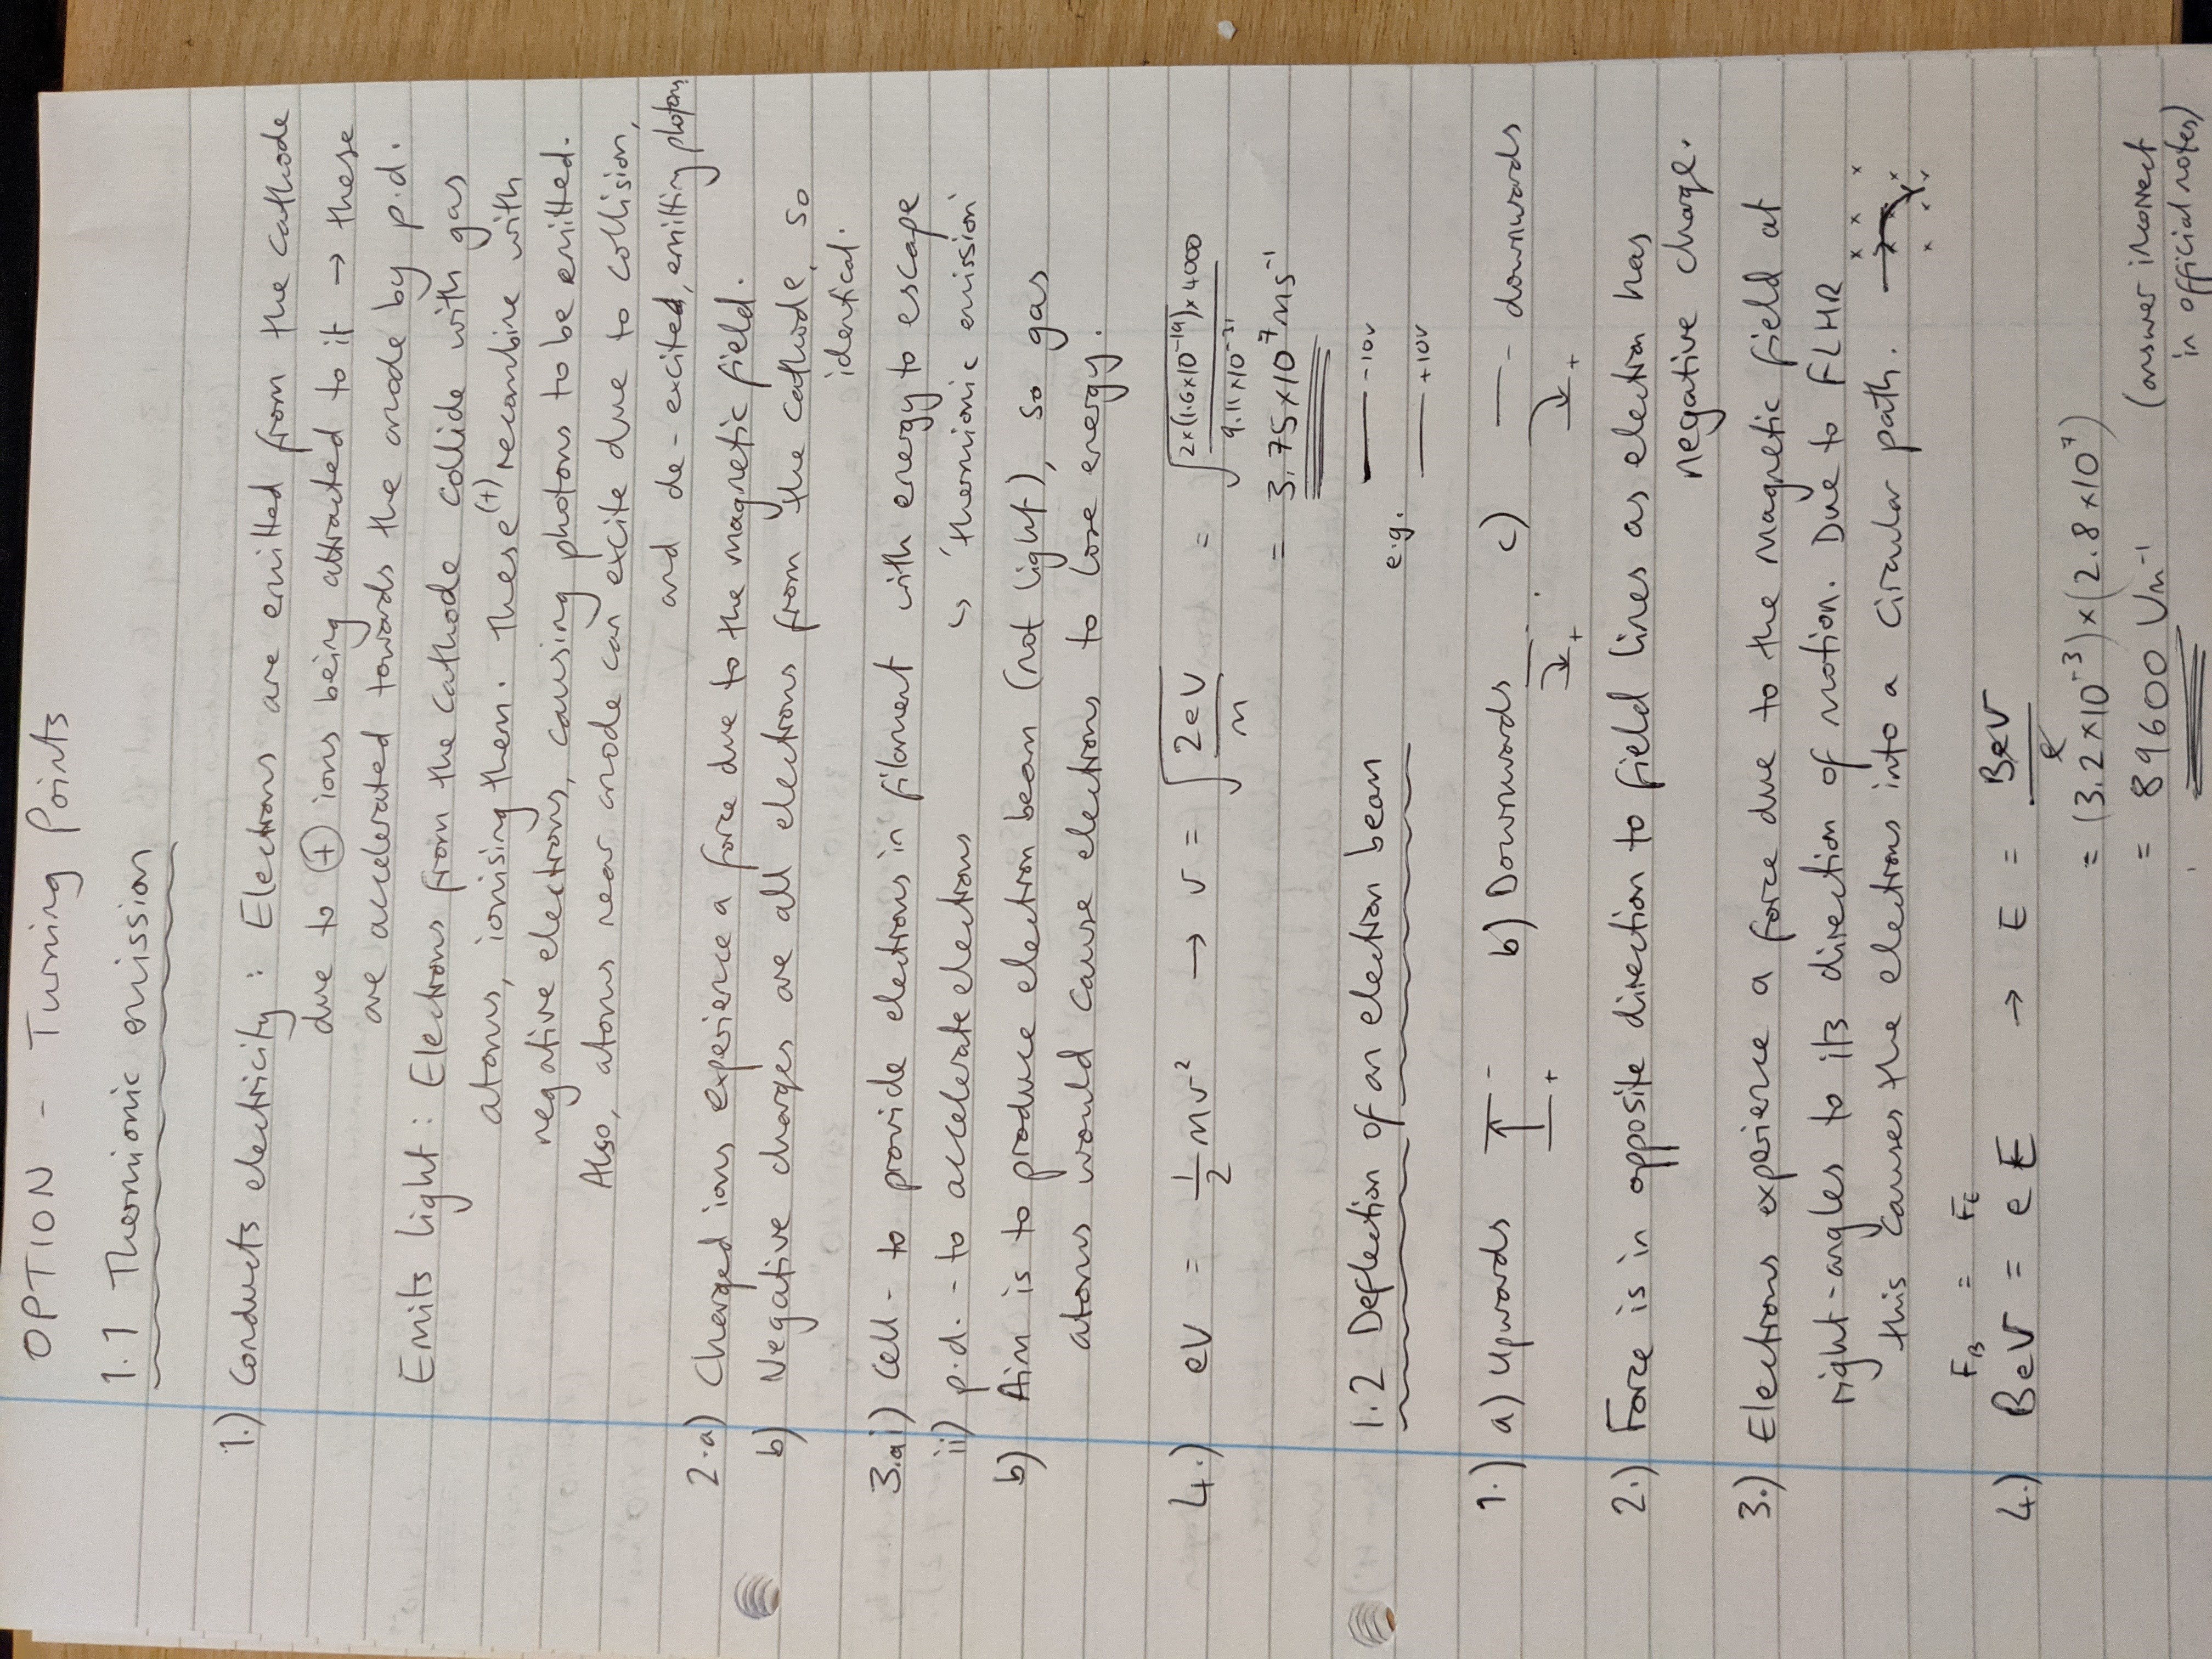 OPTION - Turning Points
1.1 Thermionic emission
1.) Conducts electricity : Electrons are emitted from the cathode
due to (+) ions being attracted to it → these
are accelerated towards the anode by p.d.
Emits light : Electrons from the cathode collide with gas
atoms, ionising them. These (+) recombine with
negative electrons, causing photons to be emitted.
Also, atoms near anode can excite due to collision,
and de-excited, emitting photons
2.a) Charged ions experience a force due to the magnetic field.
b) Negative charges are all electrons from the cathode, so
identical.
3.ai) Cell - to provide electrons in filament with energy to escape
ii) p.d. - to accelerate electrons ↳ thermionic emission
b) Aim is to produce electron beam (not light), so gas
atoms would cause electrons to lose energy.
4.) eV = 1/2 mv² → v = √(2eV/m) = √(2×(1.6×10⁻¹⁹)×4000 / 9.11×10⁻³¹)
= 3.75×10⁷ ms⁻¹
1.2 Deflection of an electron beam e.g. -10v
+10v
1.) a) Upwards - + b) Downwards - + c) - downwards +
2.) Force is in opposite direction to field lines as electron has
negative charge.
3.) Electrons experience a force due to the magnetic field at
right-angles to its direction of motion. Due to FLHR
this causes the electrons into a circular path. x x x x x x x x
F_B = F_E
4.) Bev = eE → E = Bev/e
= (3.2×10⁻³)×(2.8×10⁷)
= 89600 Vm⁻¹ (answer incorrect
in official notes)